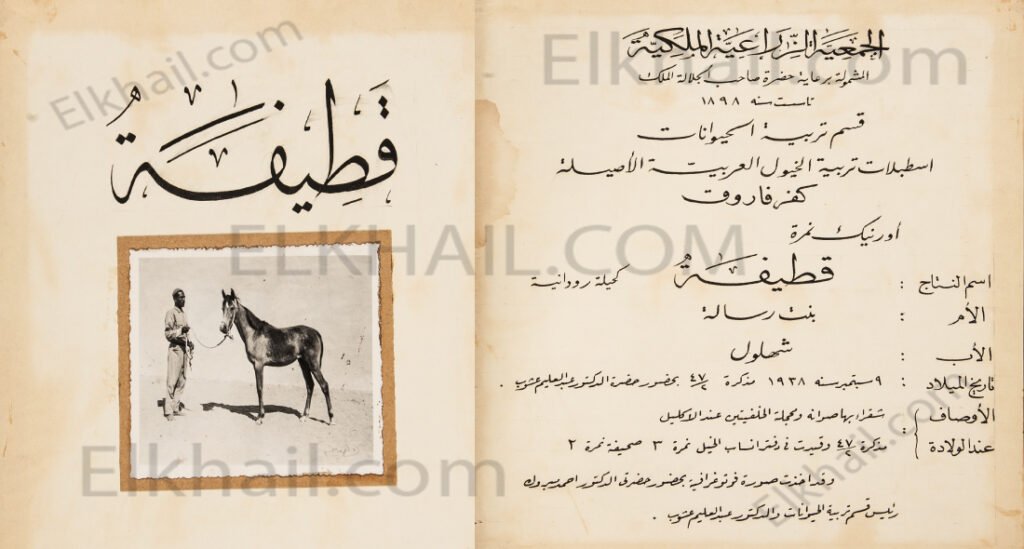 قطيفةٌ
الجمعية الزراعية الملكية
المشمولة برعاية حضرة صاحب الجلالة الملك
تأسست سنة ١٨٩٨
قسم تربية الحيوانات
اسطبلات تربية الخيول العربية الأصيلة
كفر فاروق
أورنيك نمرة
اسم النتاج : قطيفةٌ كحيلة رودانية
الأم : بنت رسالة
الأب : شهلول
تاريخ الميلاد : ٩ سبتمبر سنة ١٩٣٨ مذكرة ٤٧/٢ بحضور حضرة الدكتور عبد العليم عشوب .
الأوصاف عند الولادة : شقراء بها صوانه ومحجلة الخلفيتين عند الاكليل
مذكرة ٤٧/٢ وقيدت في دفتر انساب الخيل نمرة ٣ صحيفة نمرة ٢
وقد اخذت صورة فوتوغرافية بحضور حضرتى الدكتور احمد مبروك
رئيس قسم تربية الحيوانات والدكتور عبد العليم عشوب .
Elkhail.com
Elkhail.com
ELKHAIL.COM
Elkhail.com
Elkhail.com